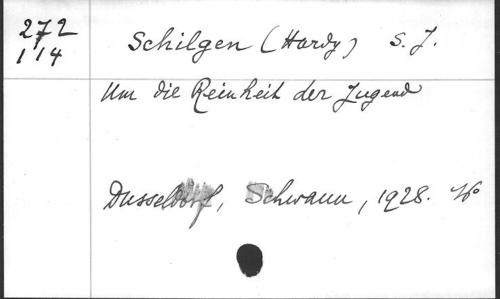 272
114
Schilgen (Hardy) S. J.
Um die Reinheit der Jugend
Dusseldorf, Schwann, 1928.